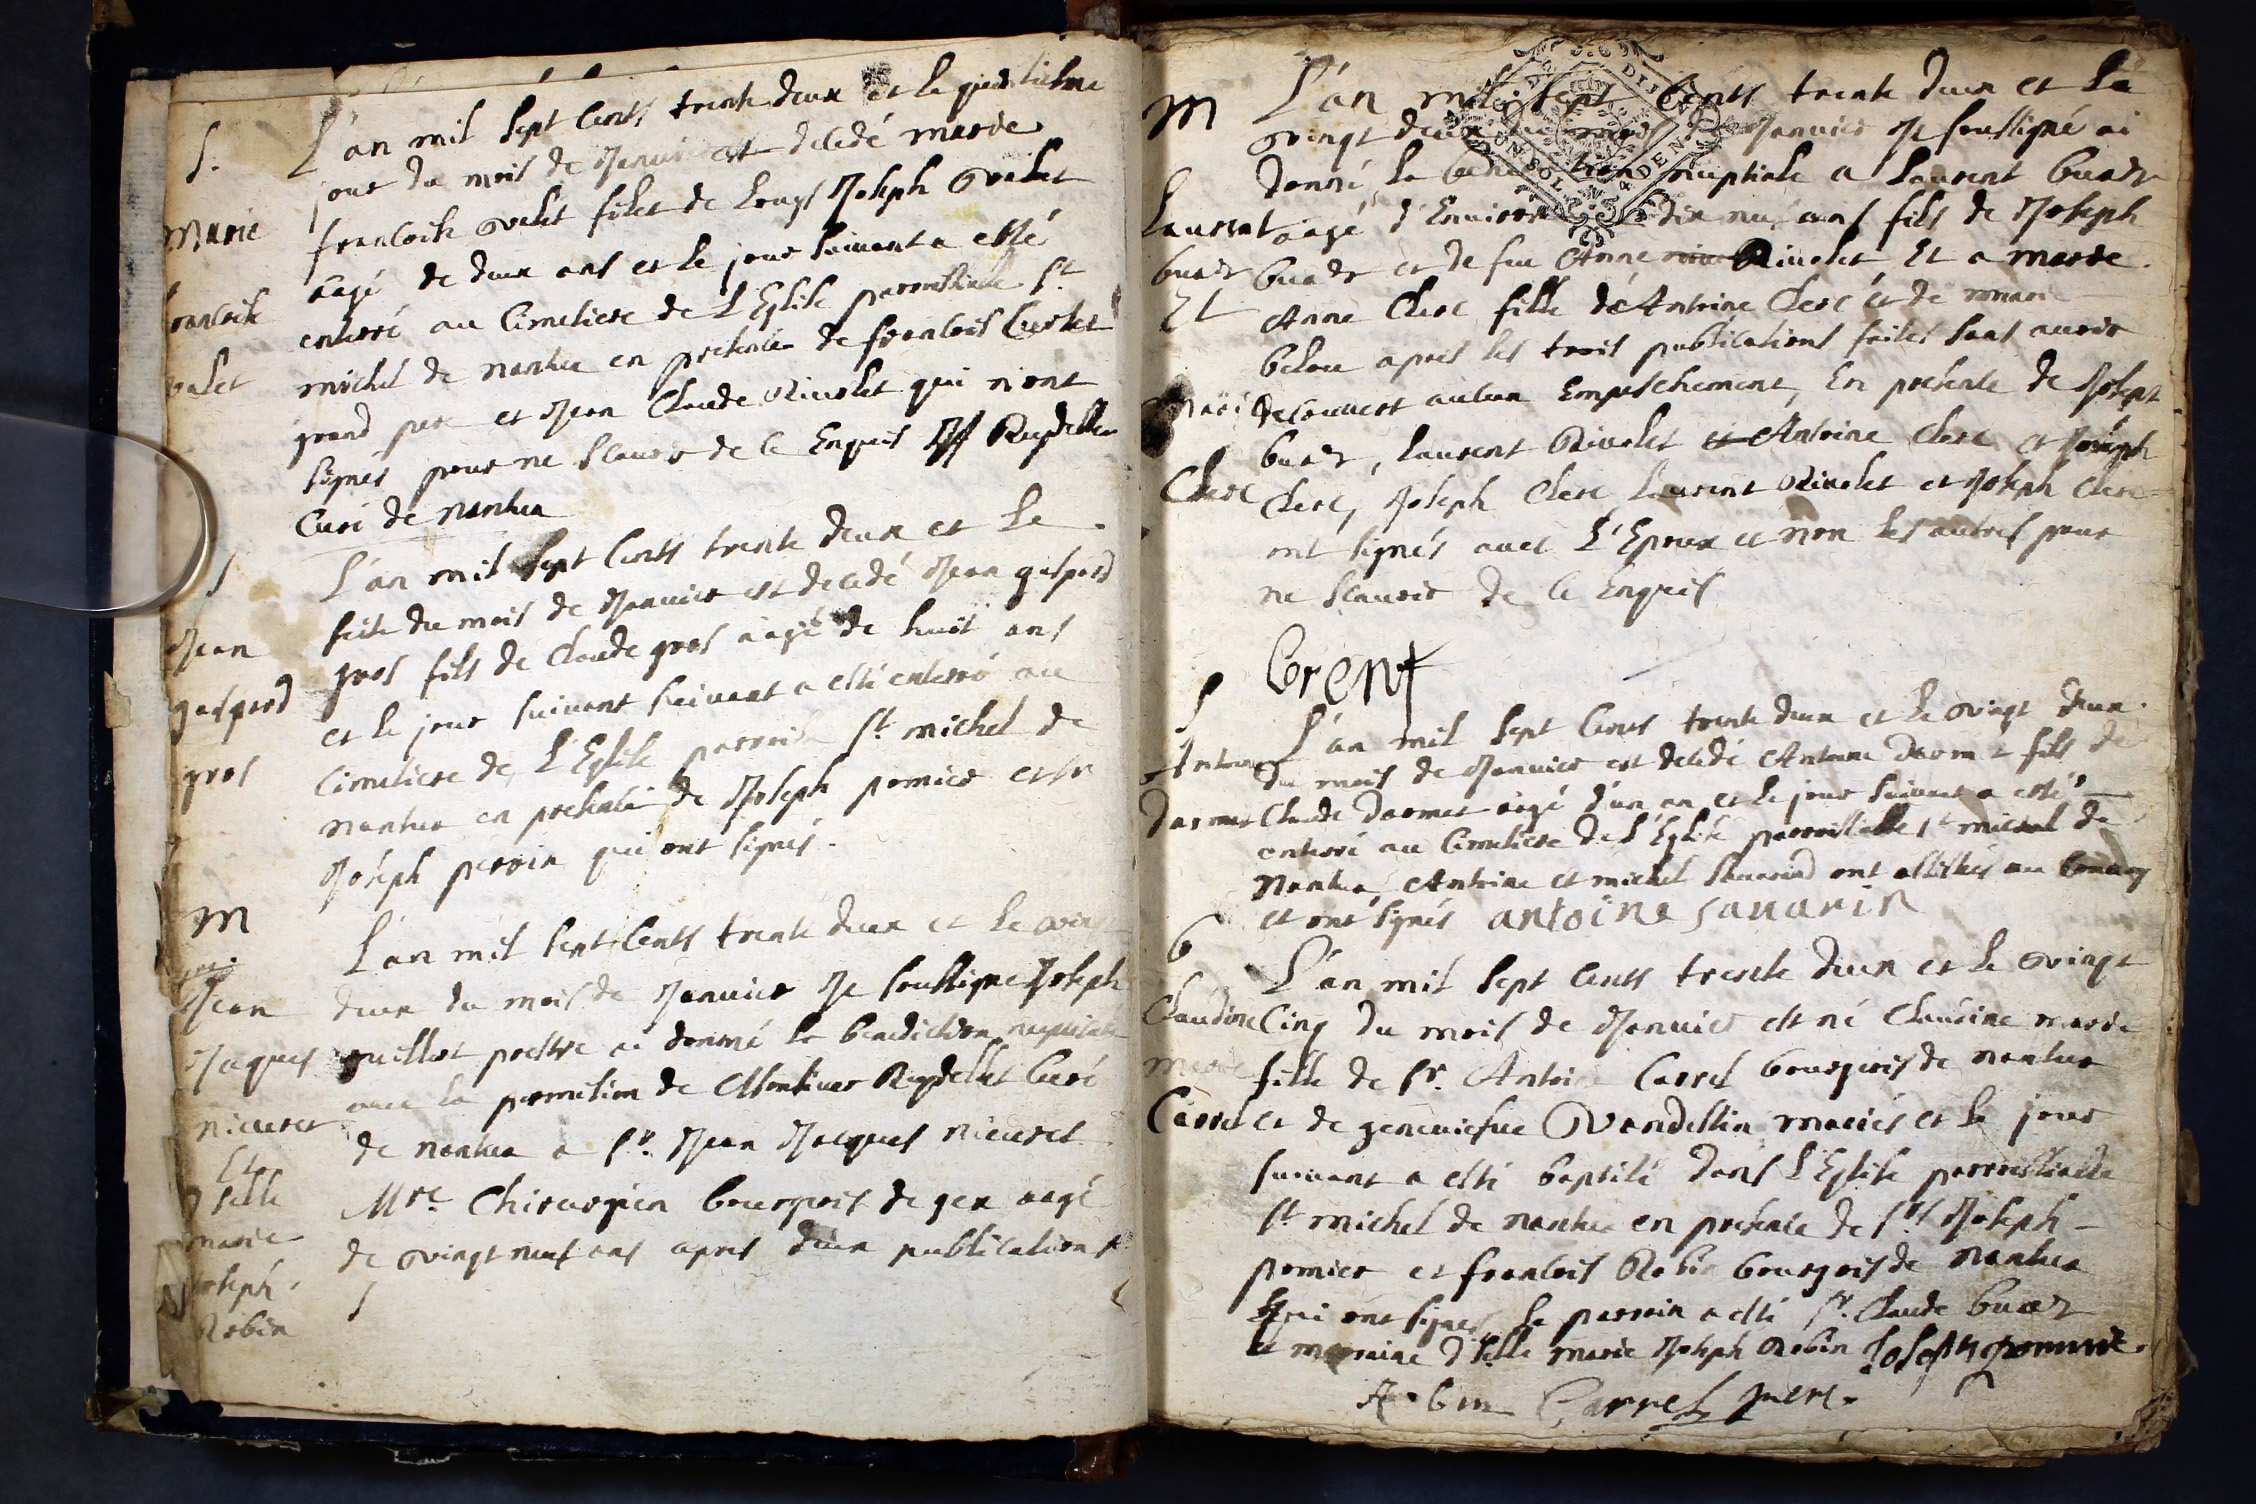 S.
Marie
francoise
ovelet
L'an mil sept cents trente deux et le quatrieme
jour du mois de Janvier est decedé marie
francoise ovelet fille de Louys Joseph ovelet
aagé de deux ans et le jour suivant a esté
enterré au Cimetiere de L'Eglise parroissialle St
michel de nantua en presence de francois
grand pere et Jean Claude Rivolet qui n'ont
signés pour ne scavoir de ce Enquis Reydellet
Curé de nantua
S
Jean
gaspard
gros
L'an mil sept cents trente deux et Le
seite du mois de Janvier est decedé Jean gaspard
gros fils de Claude gros aagé de huit ans
et le jour suivant suivant a esté enterré au
Cimetiere de L'Eglise parroiss St michel de
nantua en presence de Joseph pomier et
Joseph perrin qui ont signés.
M
Jean
Jacques
nicuret
Et
Dselle
marie
Joseph
Robin
L'an mil sept cents trente deux et Le vingt
deux du mois de Janvier Je soussigne Joseph
guillot prestre ai donné la benediction nuptiale
avec la permission de Monsieur Reydellet Curé
de nantua a Sr. Jean Jacques nicuret
Mre Chirurgien bourgeois de gex aagé
de vingt neuf ans apres deux publications
M
Laurent
buatz
Et
mari
Clerc
L'an mil sept cents trente deux et Le
vingt deux du mois de Janvier Je soussigné ai
donné la benediction nuptiale a Laurent buatz
aagé d'Environ dix neuf ans fils de Joseph
buatz et de feu Anne Rivolet Et a marie
Anne Clerc fille d'Antoine Clerc et de marie
belou apres les trois publications faites sans avoir
decouvert aucun Empeschement, En presence de Joseph
buatz, Laurent Rivolet et Antoine Clerc et Joseph
Clerc, Joseph Clerc Laurent Rivolet et Joseph Clerc
ont signés avec L'Epoux et non les autres pour
ne scavoir de ce Enquis
S
Antoine
Darmet
L'an mil sept cents trente deux et le vingt deux
du mois de Janvier est decedé Antoine Darmet fils de
Claude Darmet aagé d'un an et le jour suivant a esté
enterré au Cimetiere de L'Eglise parroissialle St michel de
Nantua Antoine et michel Savarin ont assistés au convoy
et ont signés antoine savarin
B
Claudine
marie
Carrel
L'an mil sept cents trente deux et le vingt
Cinq du mois de Janvier est né Claudine marie
fille de Sr. Antoine Carrel bourgeois de nantua
et de geneviefve Vandellin mariés et le jour
suivant a esté baptisé dans L'Eglise parroissialle
St michel de nantua en presence de Srs Joseph
pomier et francois Robin bourgeois de nantua
qui ont signes Le parrein a esté Sr. Claude buatz
et marraine Dselle marie Joseph Robin Joseph pommie.
Robin Carrel pere.